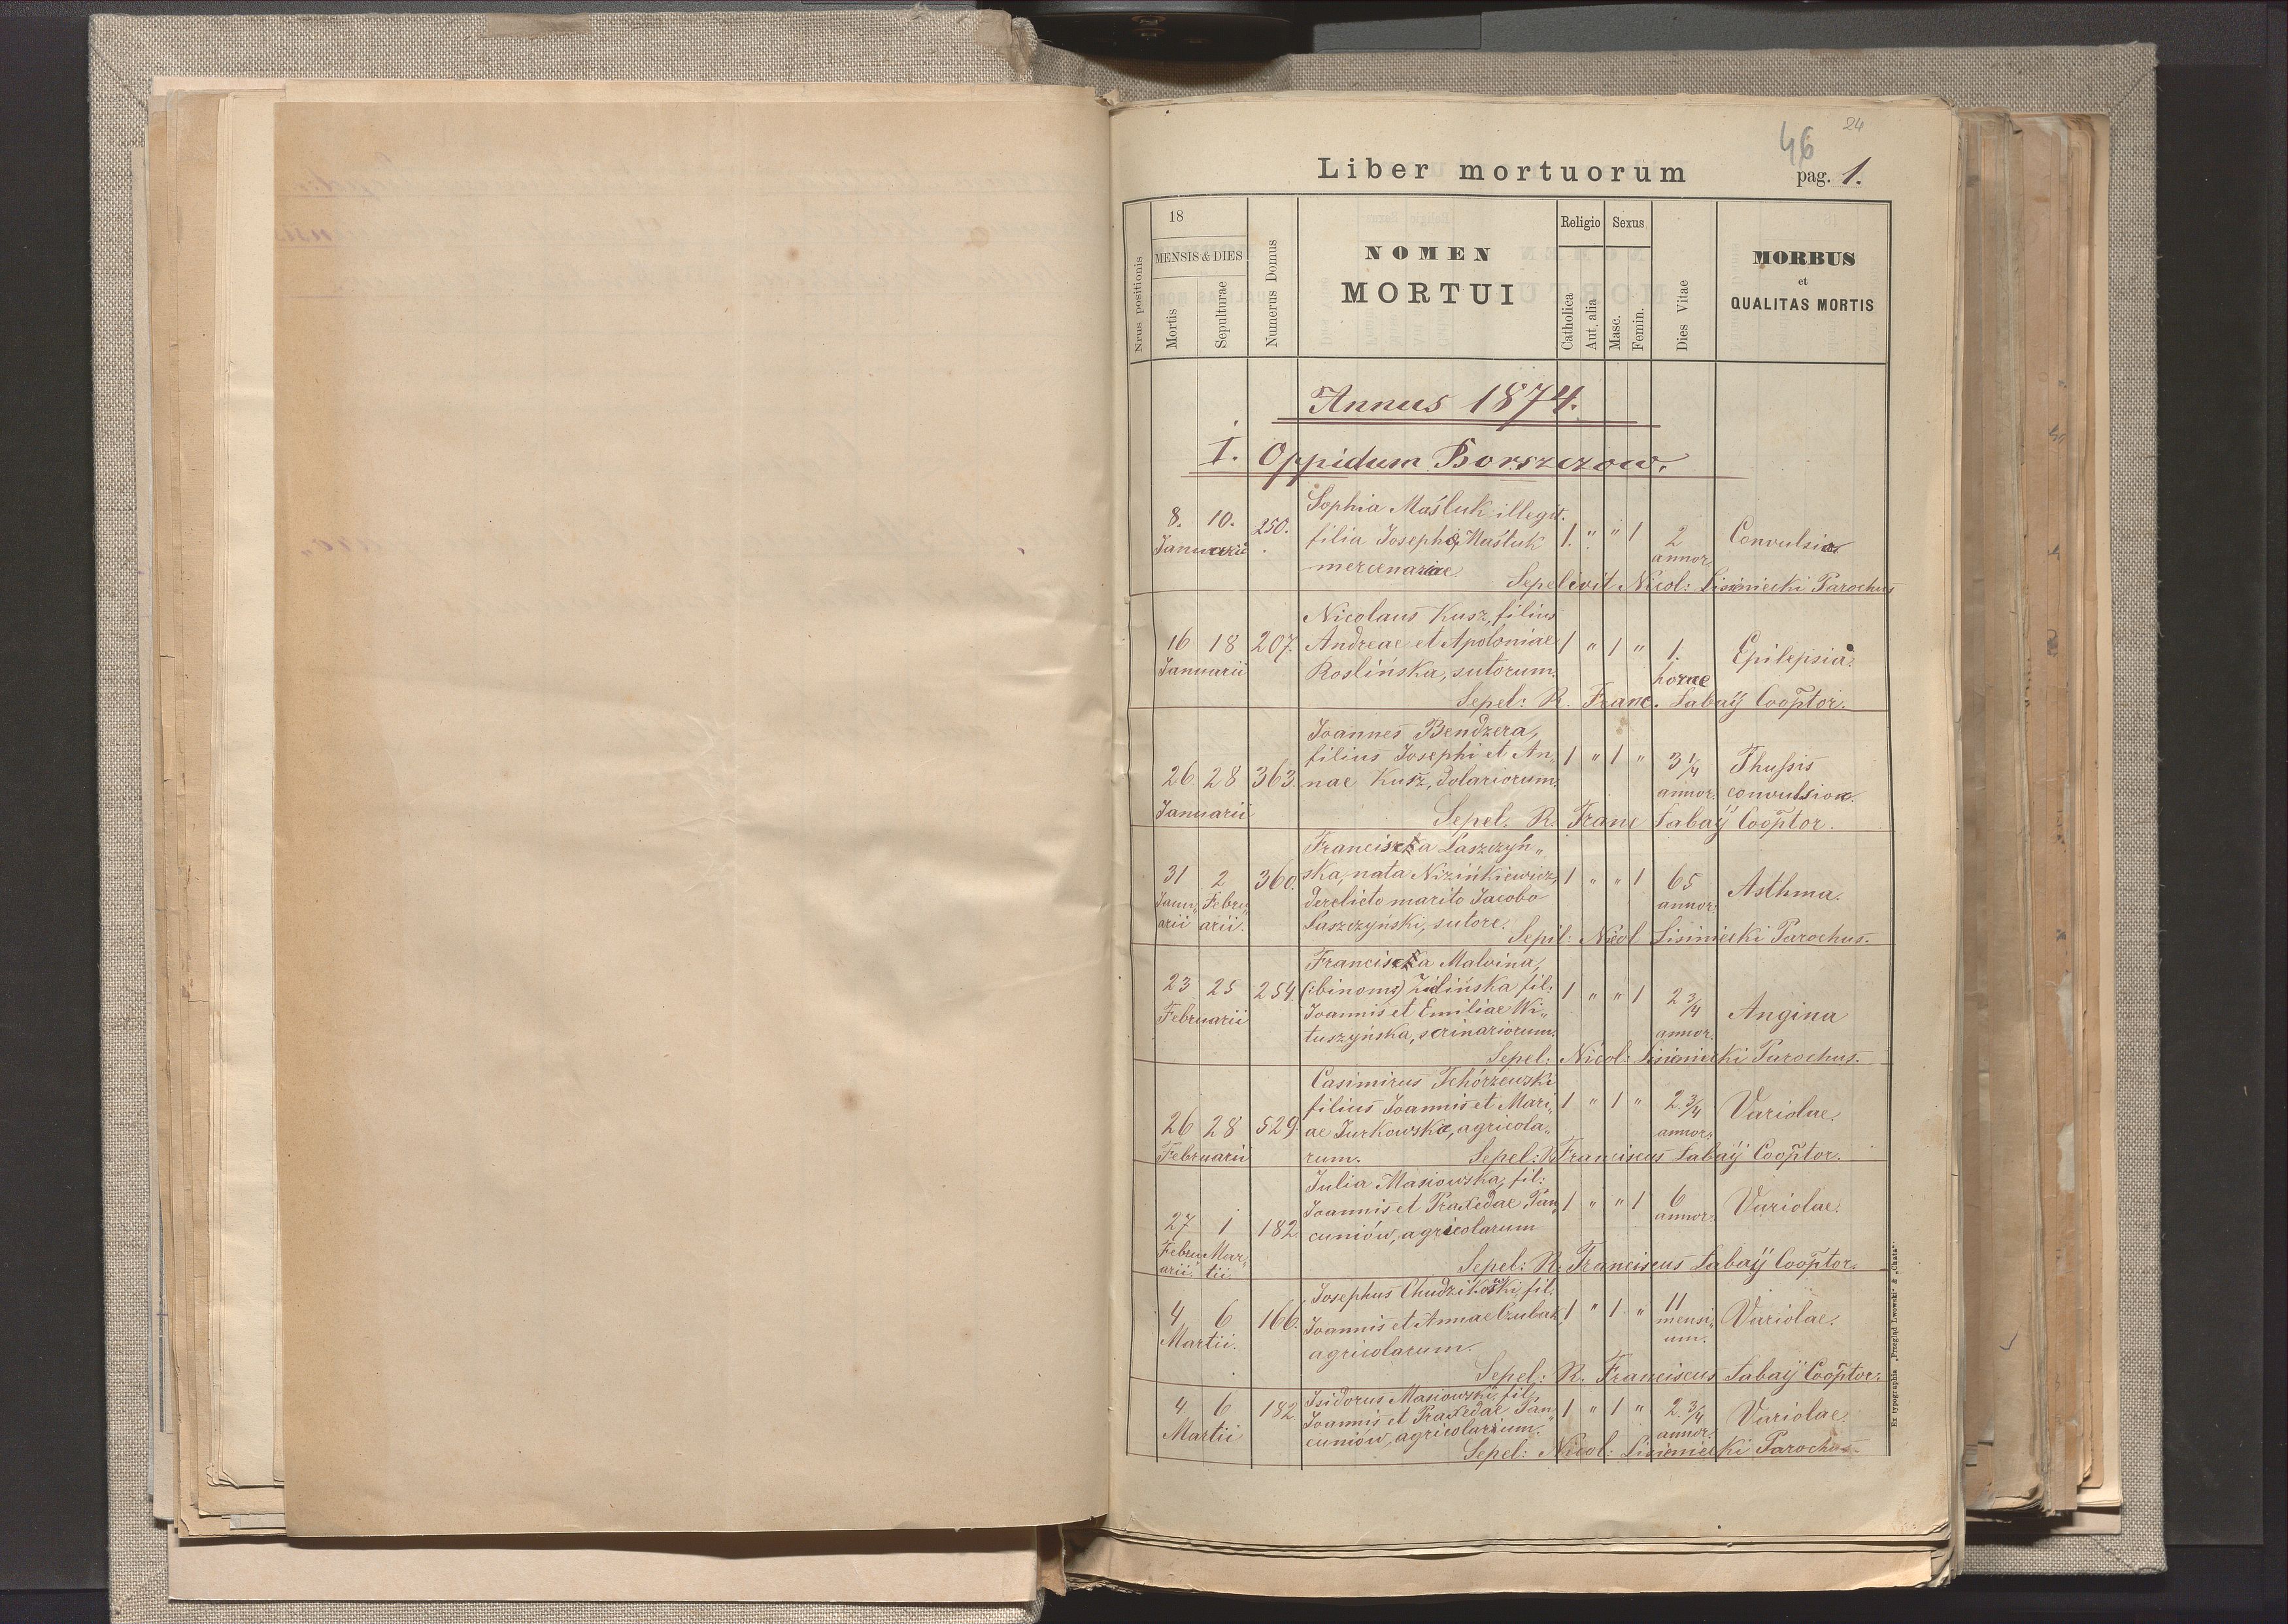 24
46
Liber mortuorum
pag. 1.
Nrus positionis
18
MENSIS & DIES
Mortis
Sepulturae
Numerus Domus
NOMEN
MORTUI
Religio
Catholica
Aut. alia
Sexus
Masc.
Femin.
Dies Vitae
MORBUS
et
QUALITAS MORTIS
Annus 1874.
I. Oppidum Borszczow.
Sophia Maśluk illegit.
8. 10. 250. filia Josephae Maśluk 1. " " 1 2 Convulsio
Januarii mercenariae annor.
Sepelivit Nicol: Lisiniecki Parochus
Nicolaus Kusz, filius
16 18 207. Andreae et Apoloniae 1 " 1 " 1. Epilepsia.
Januarii Roslińska, sutorum. horae
Sepel: R. Franc. Labaÿ Cooptor.
Joannes Bendzera,
filius Josephi et An„ 1 " 1 " 3 1/4 Thussis
26 28 363. nae Kusz, dolariorum. annor. convulsion.
Januarii Sepel. R. Franc Labaÿ Cooptor.
Francisca Laszczyń„
31 2 360. ska, nata Nizińkiewicz, 1 " " 1 65 Asthma.
Janu„ Febru„ derelicto marito Jacobo annor.
arii arii. Laszczyński, sutore.
Sepil: Nicol Lisiniecki Parochus.
Francisca Malvina,
23 25 254. (:binoms) Zielińska fil. 1 " " 1 2 3/4 Angina
Februarii Joannis et Emiliae Wi„ annor.
tuszyńska, scrinariorum.
Sepel: Nicol: Lisiniecki Parochus.
Casimirus Tchórzewski
filius Joannis et Mari„ 1 " 1 " 2 3/4 Variolae.
26 28 529. ae Jurkowska, agricola„ annor.
Februarii rum. Sepel: R Franciscus Labaÿ Cooptor.
Julia Masiowska, fil:
Joannis et Praxedae Pan„ 1 " " 1 6 Variolae.
27 1 182. cuniów, agricolarum annor.
Febru„ Mar„
arii. tii. Sepel: R. Franciscus Labaÿ Cooptor.
Josephus Chudzikowski, fil.
4 6 166. Joannis et Annae Czubak 1 " 1 " 11 Variolae.
Martii. agricolarum. mensi„
um.
Sepel: R. Franciscus Labaÿ Cooptor.
4 6 182. Isidorus Masiowski, fil.
Joannis et Praxedae Pan„ 1 " 1 " 2 3/4 Variolae.
Martii cuniów, agricolarum. annor.
Sepel: Nicol: Lisiniecki Parochus
Ex typographia „Przegląd Lwowski" & „Chata".